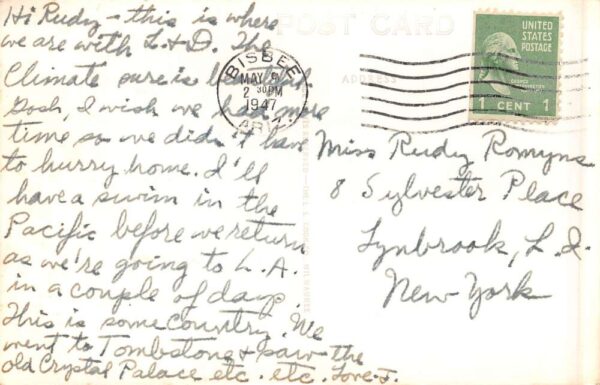 Hi Rudy - this is where
we are with L & D. The
Climate sure is
Gosh, I wish we had more
time so we didn't have
to hurry home. I'll
have a swim in the
Pacific before we return
as we're going to L.A.
in a couple of days.
This is some country. We
went to Tombstone & saw the
old Crystal Palace etc. etc. Love - J.
POST CARD
ADDRESS
BISBEE
MAY
2 30 PM
1947
ARIZ.
UNITED
STATES
POSTAGE
1 CENT 1
Miss Rudy Romyns
8 Sylvester Place
Lynbrook, L.I.
New York